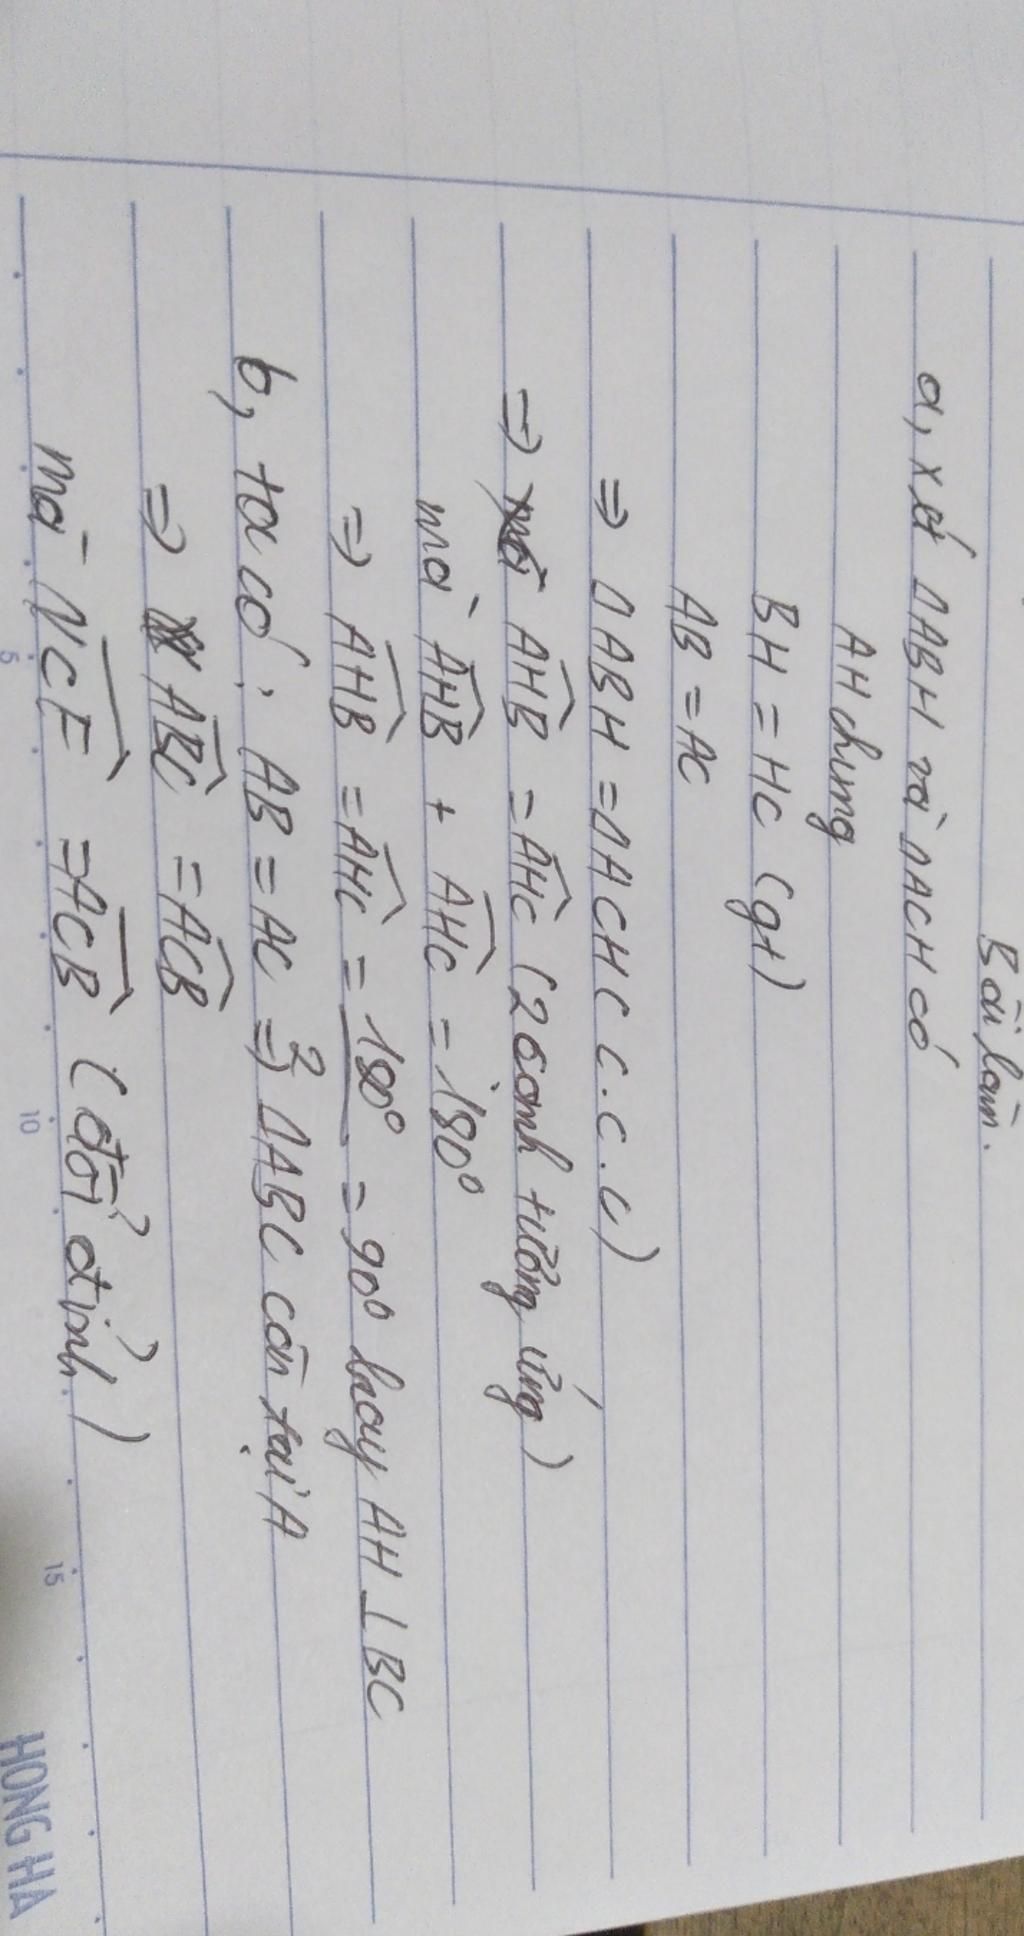 Bài làm.
a, xét ΔABH và ΔACH có
AH chung
BH = HC (gt)
AB = AC
=> ΔABH = ΔACH ( c.c.c)
=> AHB = AHC (2 cạnh tương ứng)
mà AHB + AHC = 180°
=> AHB = AHC = 180° = 90° hay AH ⊥ BC
2
b, ta có: AB = AC => ΔABC cân tại A
=> ABC = ACB
mà NCE = ACB (đối đỉnh)
5 10 15
HONG HA